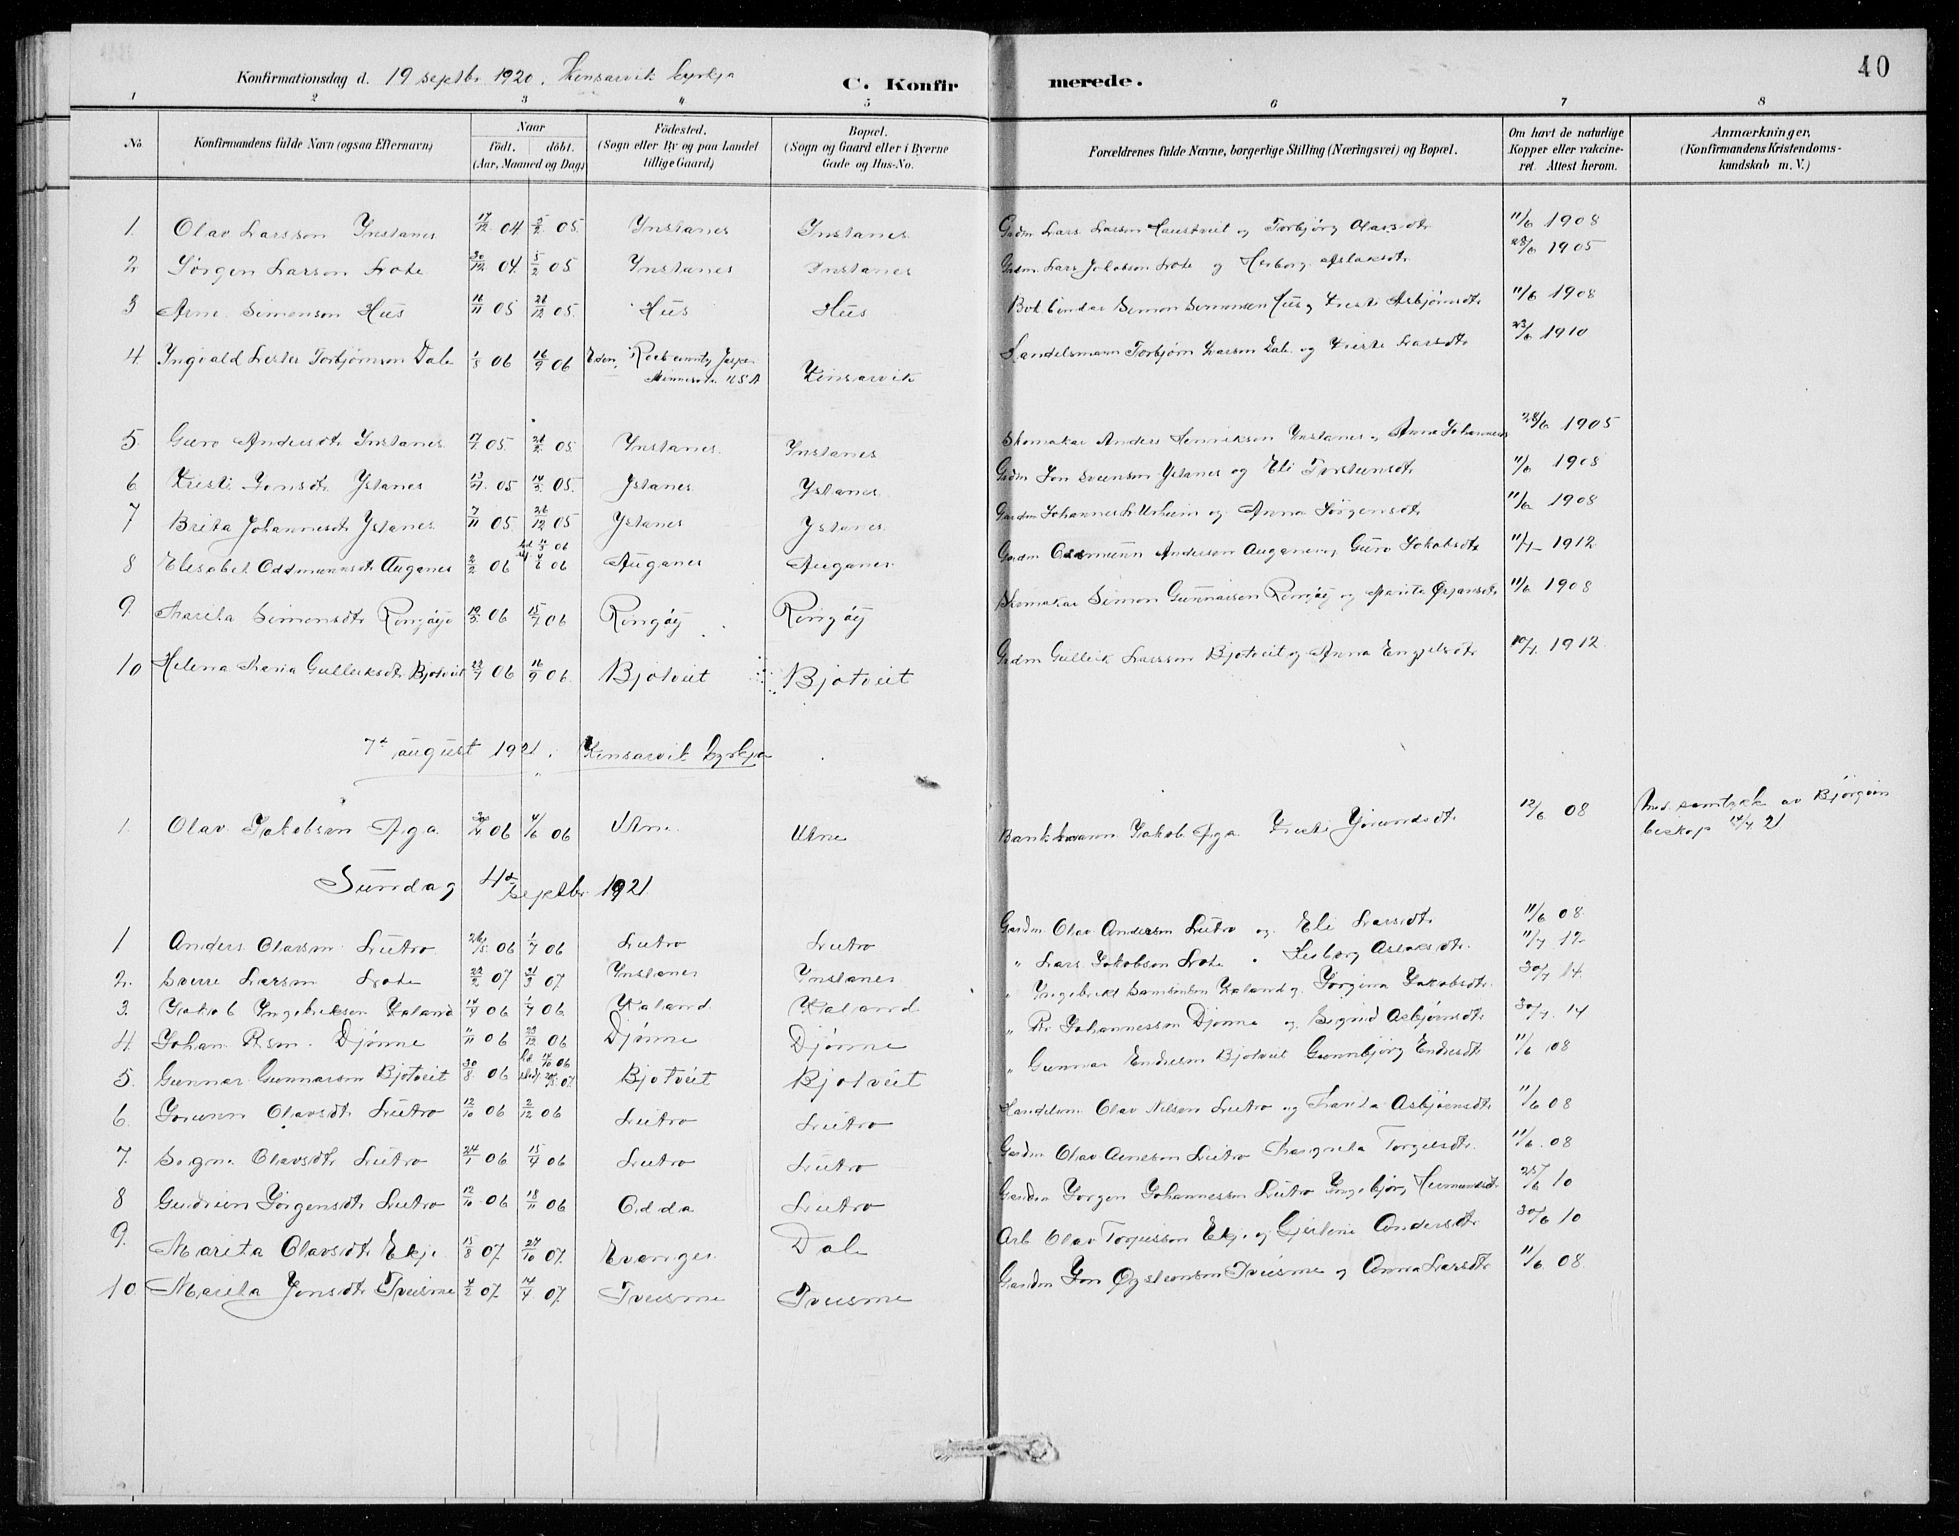 40
Konfirmationsdag d. 19 septbr 1920. Kinsarvik kyrkja C. Konfirmerede.
1 2 3 4 5 6 7 8
No. Konfirmandens fulde Navn (ogsaa Efternavn) Naar födt. döbt. (Aar, Maaned og Dag) Födested. (Sogn eller By og paa Landet tillige Gaard) Bopæl. (Sogn og Gaard eller i Byerne Gade og Hus-No. Forældrenes fulde Navne, borgerlige Stilling (Næringsvei) og Bopæl. Om havt de naturlige Kopper eller vakcineret. Attest herom. Anmærkninger, (Konfirmandens Kristendomskundskab m. V.)
1 Olav Larsson Ynstanes 17/12 04 5/2 05. Ynstanes Ynstanes Gadm Lars Larson Haustveit og Torbjørg Olavsdtr 11/6 1908
2 Jørgen Larson Lote 30/12 04. 5/2 05 Ynstanes Ynstanes Gadm. Lars Jakobson Lote og Herborg Aslaksdtr 28/6 1905
3 Arne Simonson Hus 16/11 05 26/12 05. Hus Hus Bokbindar Simon Simonson Hus og Kristi Asbjørnsdtr 11/6 1908
4 Yngvald Lester Torbjørnson Dale 1/8 06 16/9 06 Eden, Rock county, Jasper Minnesota U S A Kinsarvik Handelsmann Torbjørn Larson Dale og Kristi Larsdtr 23/6 1910
5. Guro Andersdtr Ynstanes 17/1 05. 26/2 05. Ynstanes Ynstanes Skomakar Anders Henrikson Ynstanes og Anna Johannesd 28/6 1905
6 Kristi Jonsdtr Ystanes 13/4 05 14/5 05. Ystanes Ystanes Gadm Jon Sveinson Ystanes og Eli Torsteinsdtr 11/6 1908
7 Brita Johannesdtr Ystanes 7/11 05 26/12 05 Ystanes Ystanes Gardm Johannes L Urheim og Anna Jørgensdtr 11/6 1908
8 Elisabet Oddmundsdtr Auganes 2/2 06 hd 11/3 06 4/6 06 Auganes Auganes Gadm Oddmunn Anderson Auganes og Guro Jakobsdtr 11/7 1912
9. Marita Simonsdtr Rongøy 19/5 06 15/7 06 Rongøy Rongøy Skomakar Simon Gunnarson Rongøy og Marita Ørjansdtr 11/6 1908
10 Helena Maria Gulleiksdtr Bjotveit 22/7 06 16/9 06. Bjotveit Bjotveit Gadm Gulleik Larsson Bjotveit og Anna Engelsdtr 10/7. 1912.
7de august 1921. Kinsarvik kyrkja
1. Olav Jakobson Aga 30/4 06 4/6 06 Utne Utne Bankkmann Jakob Aga Kristi Jørundsdtr 12/6 08 Med samtykk av Bjørgvin
biskop 14/4 21
Sundag 4de septbr 1921
1 Anders Olavson Lutro 26/5 06 1/7 06 Lutro Lutro Gardm Olav Anderson Lutro og Eli Larsdtr 11/6 08.
2. Sverre Larson Lote 22/2 07 31/3 07 Ynstanes Ynstanes " Lars Jakobson Lote " Herborg Aslaksdtr. 11/7 12
3. Jakob Yngebrikson Kaland 14/4 06 1/7 06 Kaland Kaland " Yngebrikt Samsonson Kaland og Jorgina Jakobsdtr 30/7 14.
4. Johan Rson Djønne 11/11 06 23/12 06 Djønne Djønne " R. Johannesson Djønne og Sigrid Asbjørnsdtr 30/7. 14
5. Gunnar Gunnarson Bjotveit 30/8. 06 hd 14/10 06 Bjotveit Bjotveit " Gunnar Endreson Bjotveit Gunnbjørg Endresdtr 11/6 08
6. Jorunn Olavsdtr Lutro 12/10 06 2/12 06 Lutro Lutro Handelsm. Olav Nilson Lutro og Marita Asbjørnsdtr 11/6 08
7. Sigrid Olavsdtr Lutro 24/1 06 15/4 06 Lutro Lutro Gardm Olav Arneson Lutro Margreta Torgilsdtr. 11/6. 08
8 Gudrun Jørgensdtr Lutro 12/10 06 18/11 06 Odda Lutro Gardm Jorgen Johannesson Lutro Yngebjørg Hermundsdtr 25/6 10
9. Marita Olavsdtr Ekje 15/8 07. 27/10 07. Evanger Dale Arb Olav Torgeisson Ekje og Gjertine Andersdtr 30/6 10
10 Marita Jonsdtr Tveisme 4/2 07. 14/4 07. Tveisme Tveisme Gardm Jon Øysteinson Tveisme og Anna Larsdtr 11/6 08.